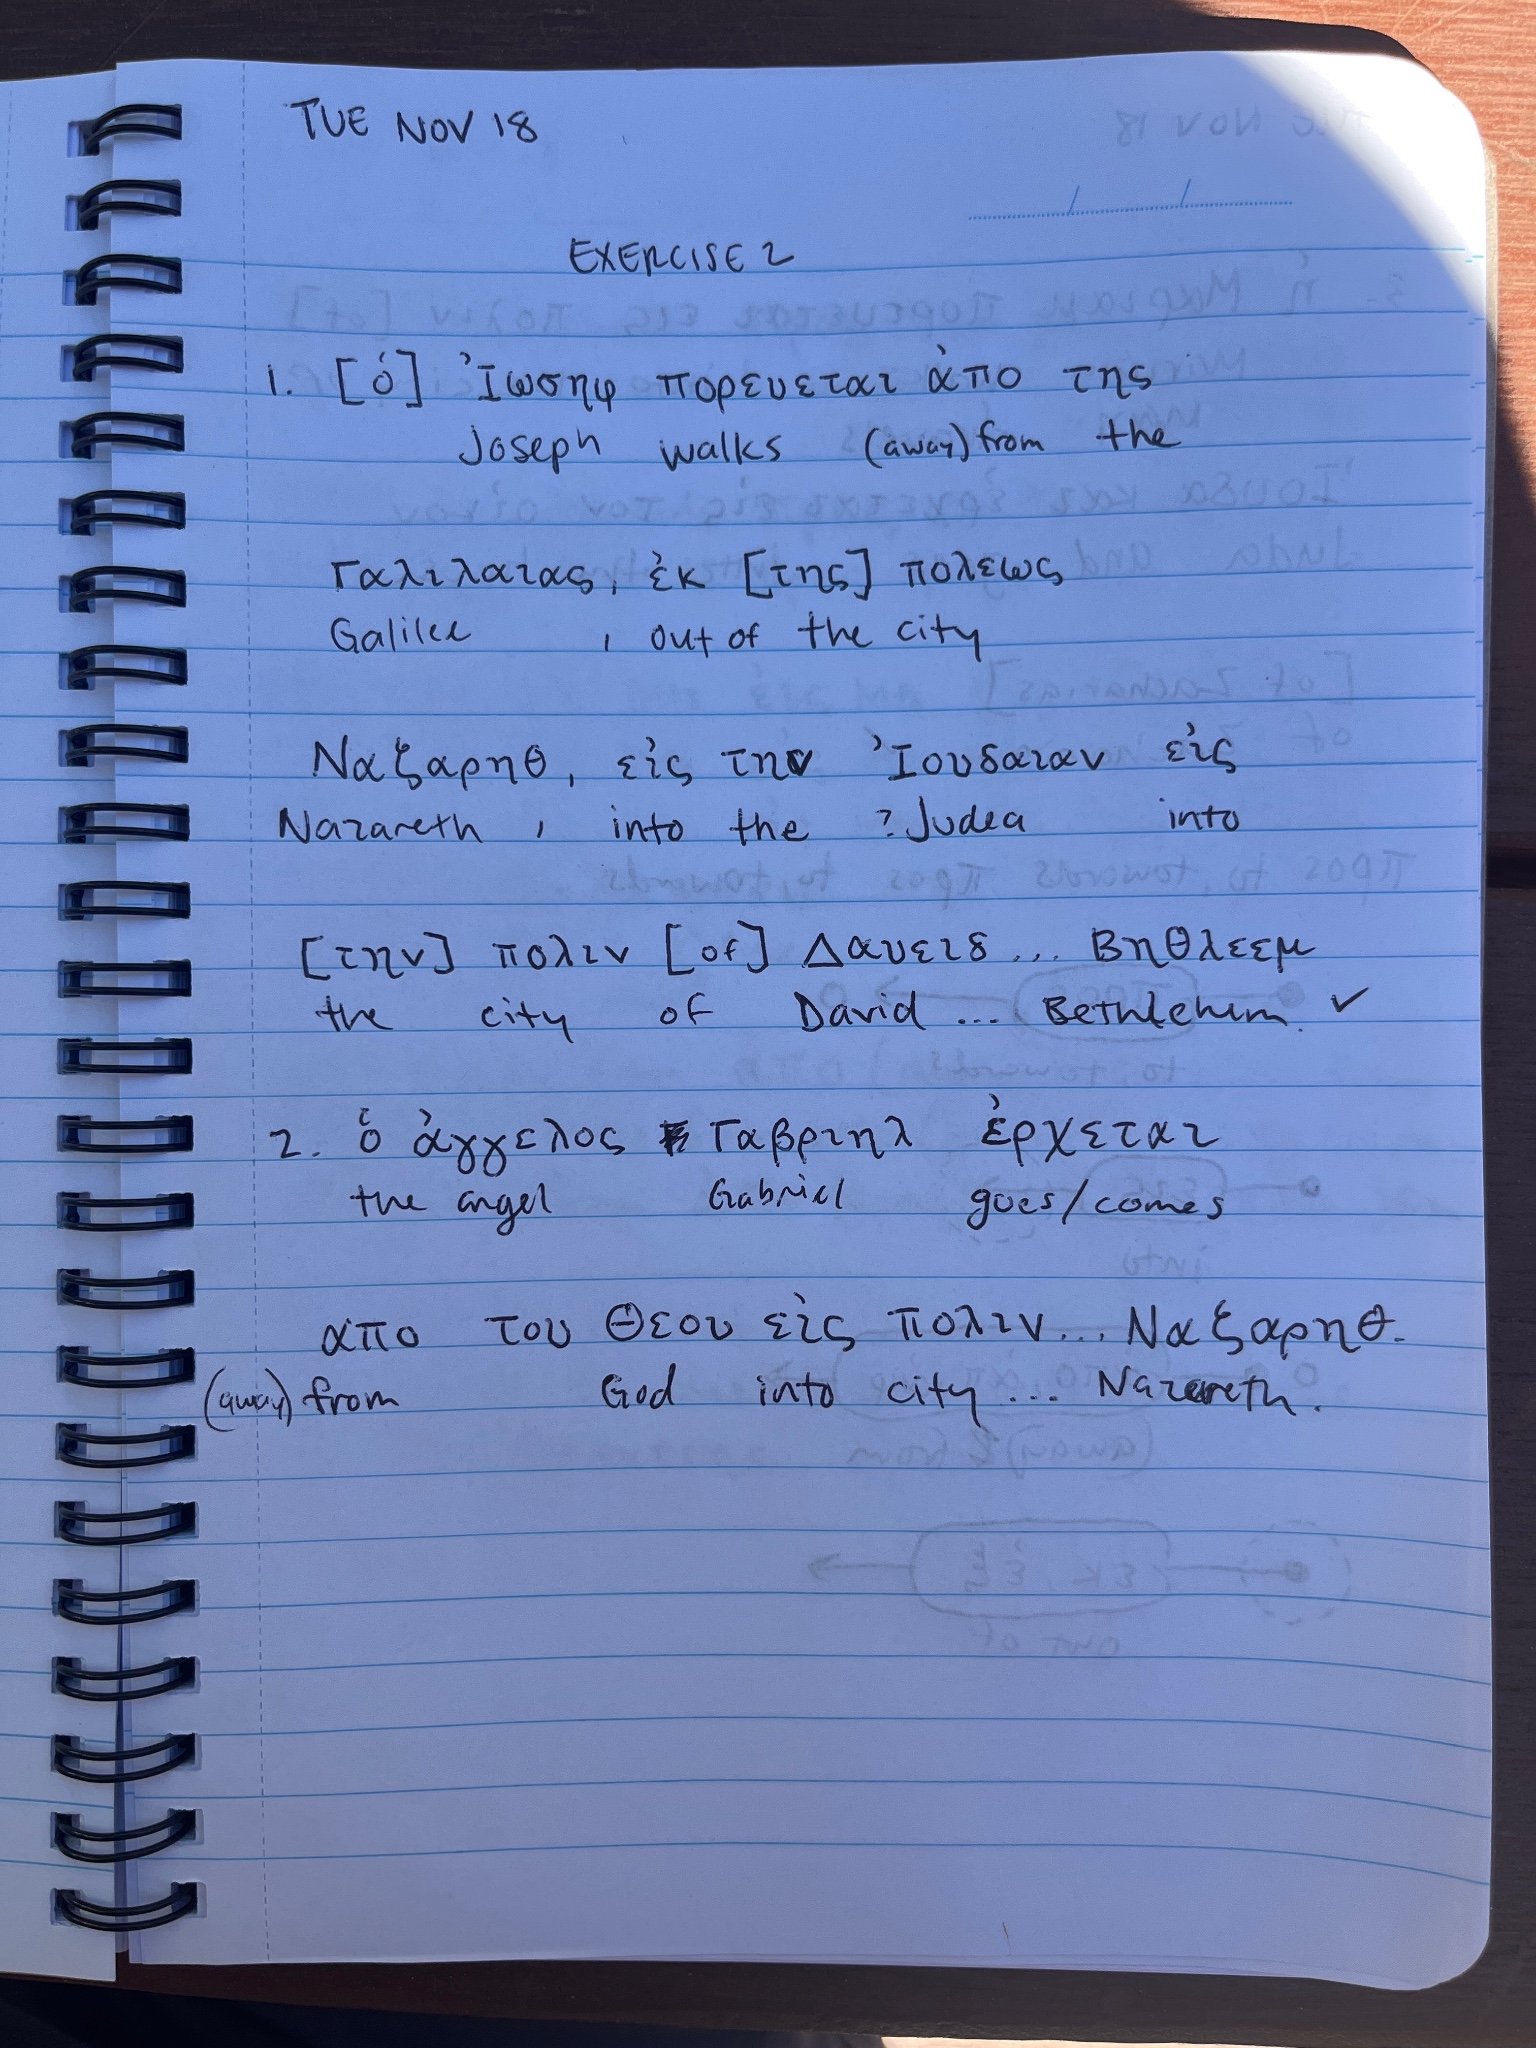 TUE NOV 18
EXERCISE 2
1. [ὁ] Ἰωσηφ πορευεται ἀπο της
Joseph walks (away) from the
Γαλιλαιας, ἐκ [της] πολεως
Galilee , out of the city
Ναζαρηθ, εἰς την Ἰουδαιαν εἰς
Nazareth , into the ? Judea into
[την] πολιν [of] Δαυειδ ... Βηθλεεμ
the city of David ... Bethlehem. ✓
2. ὁ ἀγγελος Γαβριηλ ἐρχεται
the angel Gabriel goes/comes
απο του Θεου εἰς πολιν... Ναζαρηθ.
(away) from God into city ... Nazareth.